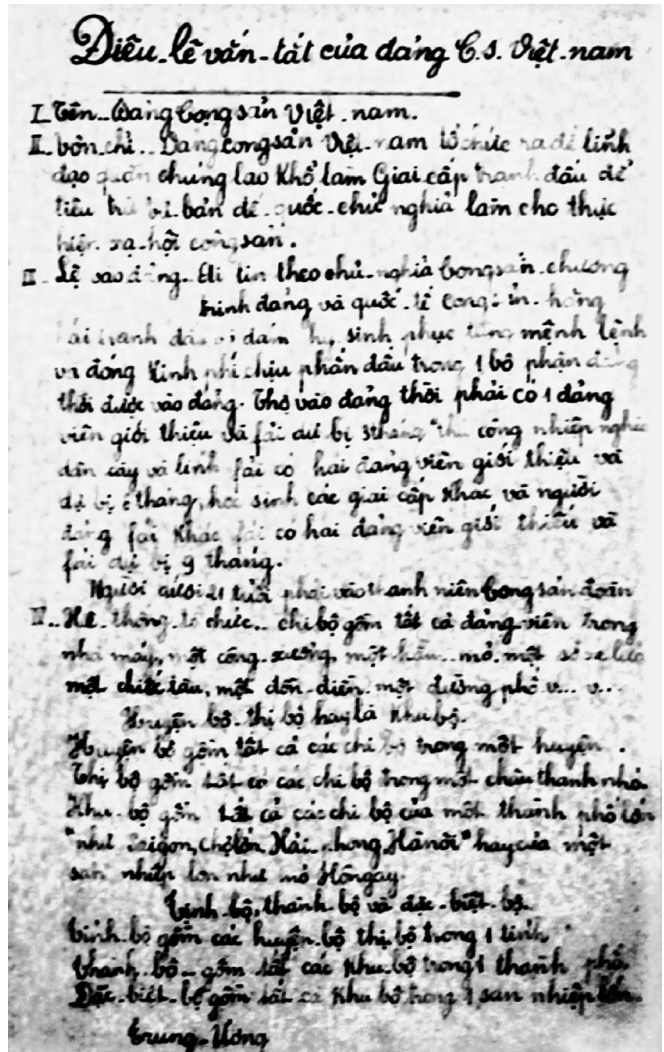 Điều-lệ vắn-tắt của đảng C.S. Việt-nam
I. Tên.. Đảng Cộng sản Việt-nam.
II. Tôn chỉ.. Đảng cộng sản Việt-nam tổ chức ra để lĩnh
đạo quần chúng lao khổ làm Giai cấp tranh đấu để
tiêu trừ tư bản đế quốc chủ nghĩa làm cho thực
hiện xã-hội cộng sản.
III. Lệ vào đảng.. Ai tin theo chủ-nghĩa cộng sản, chương
trình đảng và quốc-tế cộng sản, hăng
hái tranh đấu và dám hy sinh phục tùng mệnh lệnh
và đóng kinh phí chịu phấn đấu trong 1 bộ phận đảng
thời được vào đảng. Thợ vào đảng thời phải có 1 đảng
viên giới thiệu và fải dự bị 3 tháng, thủ công nghiệp
dân cày và lính fải có hai đảng viên giới thiệu và
dự bị 6 tháng, học sinh các giai cấp khác và người
đảng fái khác fải có hai đảng viên giới thiệu và
fải dự bị 9 tháng.
Người dưới 21 tuổi phải vào thanh niên cộng sản đoàn
IV.. Hệ-thống-tổ chức.. chi bộ gồm tất cả đảng viên trong
nhà máy, một công-xưởng, một hầm mỏ, một sở xe lửa
một chiếc tàu, một đồn-điền, một đường phố v... v...
Huyện bộ, thị bộ hay là khu bộ.
Huyện bộ gồm tất cả các chi bộ trong một huyện.
Thị bộ gồm tất cả các chi bộ trong một châu thành nhỏ.
Khu-bộ gồm tất cả các chi bộ của một thành phố lớn
"như Saigon, chợ lớn, Hải-phong, Hà nội" hay của một
sản nghiệp lớn như mỏ Hòngay.
Tỉnh-bộ, thành-bộ và đặc-biệt-bộ.
Tỉnh-bộ gồm các huyện-bộ thị bộ trong 1 tỉnh
Thành-bộ.. gồm tất các khu-bộ trong 1 thành phố.
Đặc-biệt-bộ gồm tất cả khu bộ trong 1 sản nghiệp lớn.
Trung-Ương